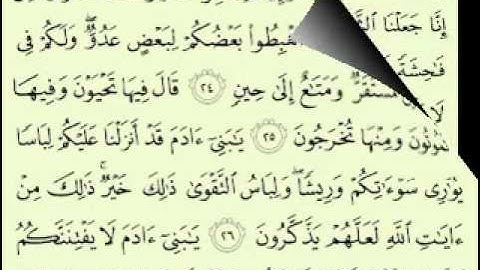 إِنَّا جَعَلْنَا بَعْضُكُمْ لِبَعْضٍ عَدُوٌّ ۖ وَلَكُمْ فِى
فَـٰحِشَةً مُسْتَقَرٌّ وَمَتَـٰعٌ إِلَىٰ حِينٍ ٢٤ قَالَ فِيهَا تَحْيَوْنَ وَفِيهَا
تَمُوتُونَ وَمِنْهَا تُخْرَجُونَ ٢٥ يَـٰبَنِىٓ ءَادَمَ قَدْ أَنزَلْنَا عَلَيْكُمْ لِبَاسًا
يُوَٰرِى سَوْءَٰتِكُمْ وَرِيشًا ۖ وَلِبَاسُ ٱلتَّقْوَىٰ ذَٰلِكَ خَيْرٌ ۚ ذَٰلِكَ مِنْ
ءَايَـٰتِ ٱللَّهِ لَعَلَّهُمْ يَذَّكَّرُونَ ٢٦ يَـٰبَنِىٓ ءَادَمَ لَا يَفْتِنَنَّكُمُ